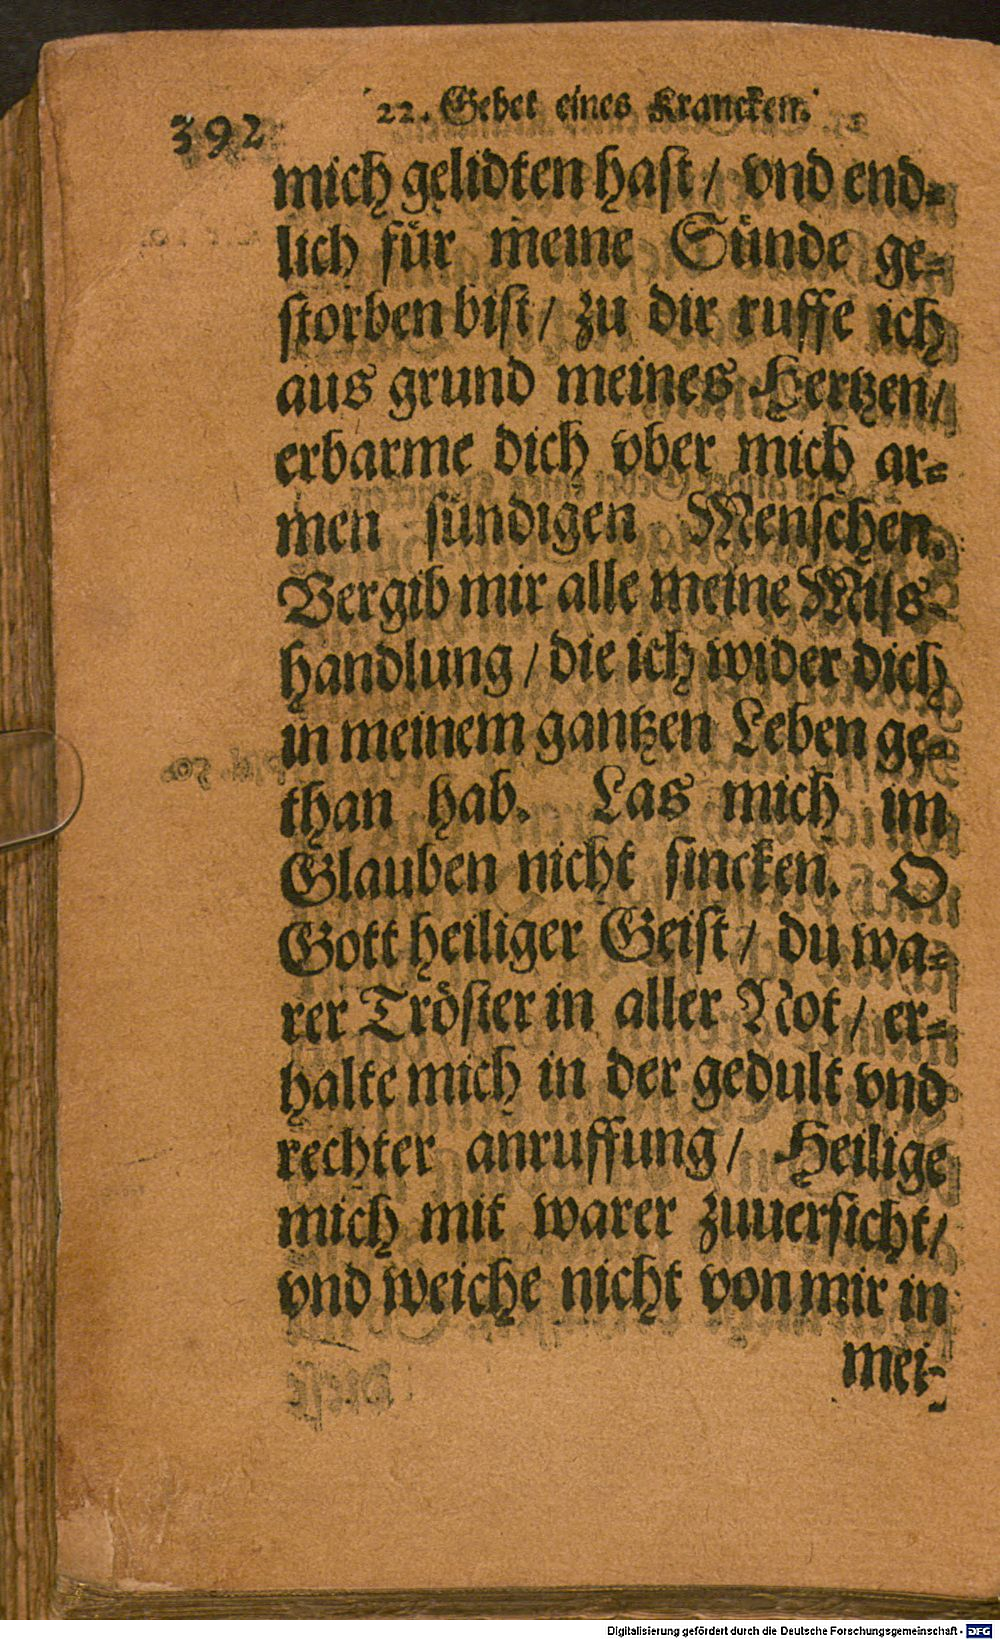 392 22. Gebet eines Krancken.
mich gelidten hast / vnd end-
lich für meine Sünde ge-
storben bist / zu dir ruffe ich
aus grund meines Hertzen /
erbarme dich vber mich ar-
men sündigen Menschen.
Vergib mir alle meine Miss-
handlung / die ich wider dich
in meinem gantzen Leben ge-
than hab. Las mich im
Glauben nicht sincken. O
Gott heiliger Geist / du wa-
rer Tröster in aller Not / er-
halte mich in der gedult vnd
rechter anruffung / Heilige
mich mit warer zuuersicht /
vnd weiche nicht von mir in
mei-
Digitalisierung gefördert durch die Deutsche Forschungsgemeinschaft - DFG